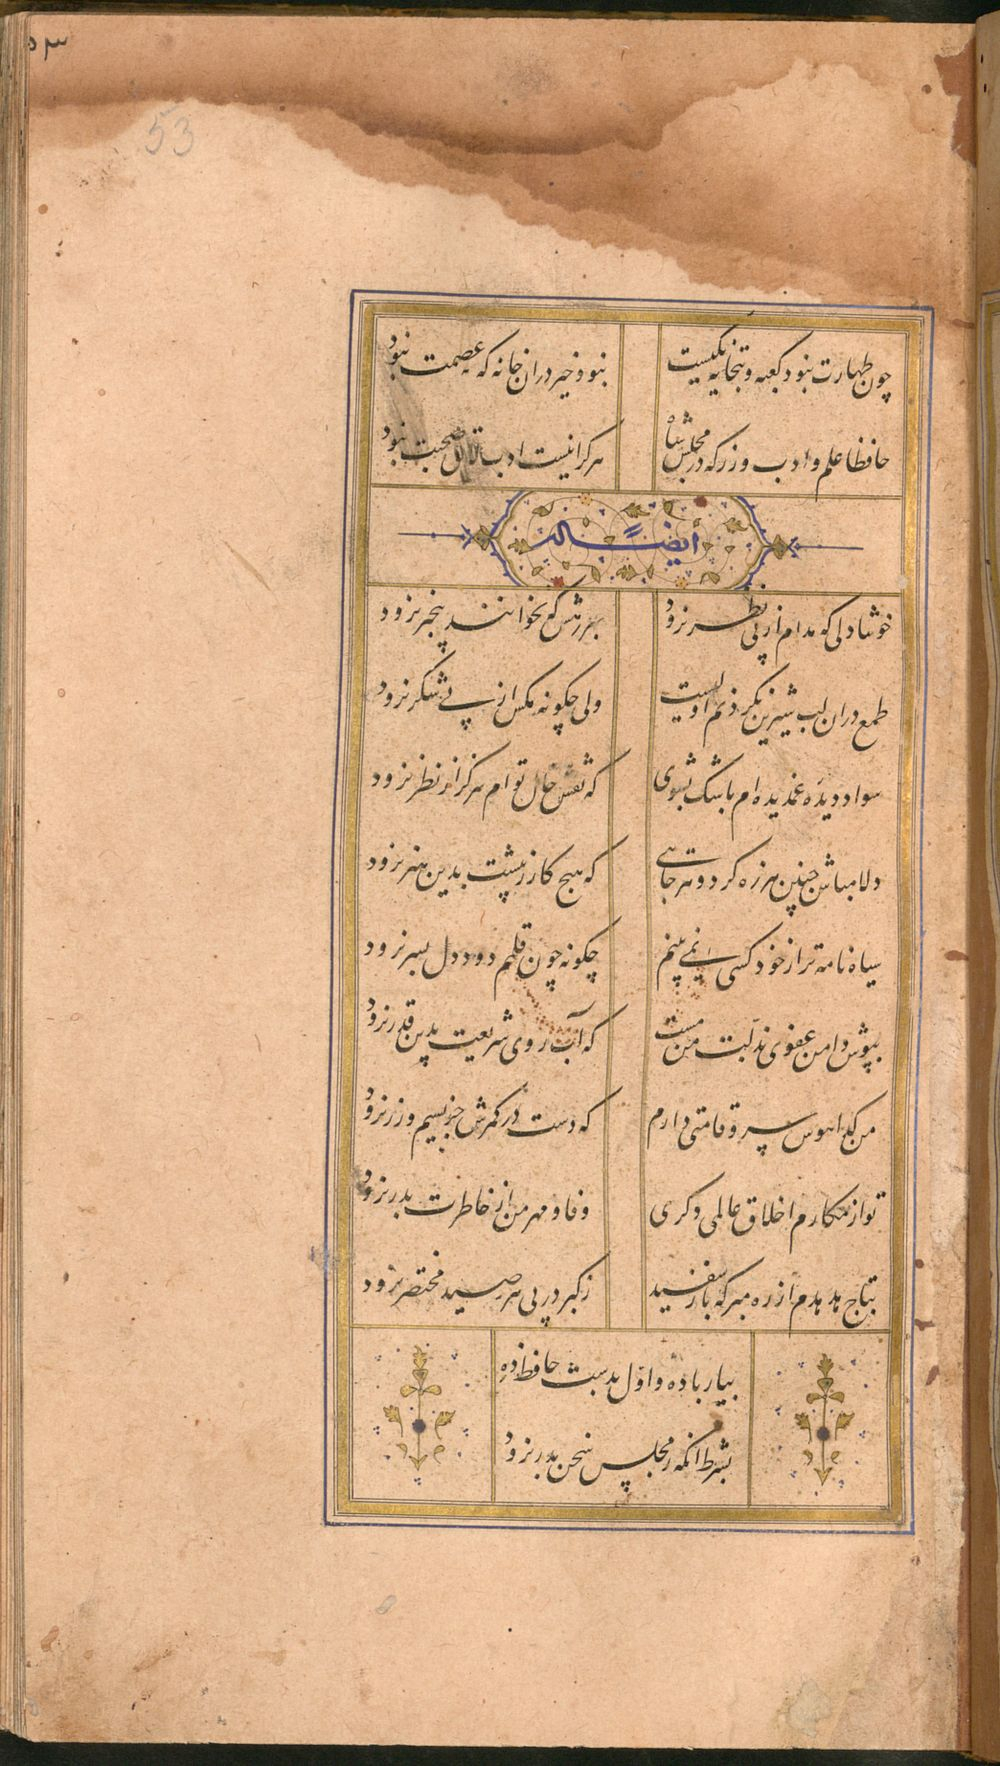 ۵۳
53
چون طهارت نبود کعبه و بتخانه یکیست نبود خیر دران خانه که عصمت نبود
حافظا علم و ادب ورز که در مجلس شاه هر کرا نیست ادب قابل صحبت نبود
ایضًا له
خوشا دلی که مدام از پی نظر نرود بهر درش که بخوانند بیخبر نرود
طمع دران لب شیرین نکردنم اولیست ولی چگونه مکس از پی شکر نرود
سواد دیده غمدیده ام باشک بشوی که نقش خال توام هرگز از نظر نرود
دلا مباش چنین هرزه کرد و هر جائی که هیچ کار ز پیشت بدین هنر نرود
سیاه نامه تر از خود کسی نمی بینم چگونه چون قلمم دود دل بسر نرود
بپوش دامن عفوی بذلت من مست که آب روی شریعت بدین قدر نرود
من کدا هوس سرو قامتی دارم که دست در کمرش جز بسیم و زر نرود
تو از مکارم اخلاق عالمی دکری وفا و مهر من از خاطرت بدر نرود
بتاج هدهدم از ره مبر که باز سفید ز کبر در پی هر صید مختصر نرود
بیار باده و اول بدست حافظ ده
بشرط انکه ز مجلس سخن بدر نرود